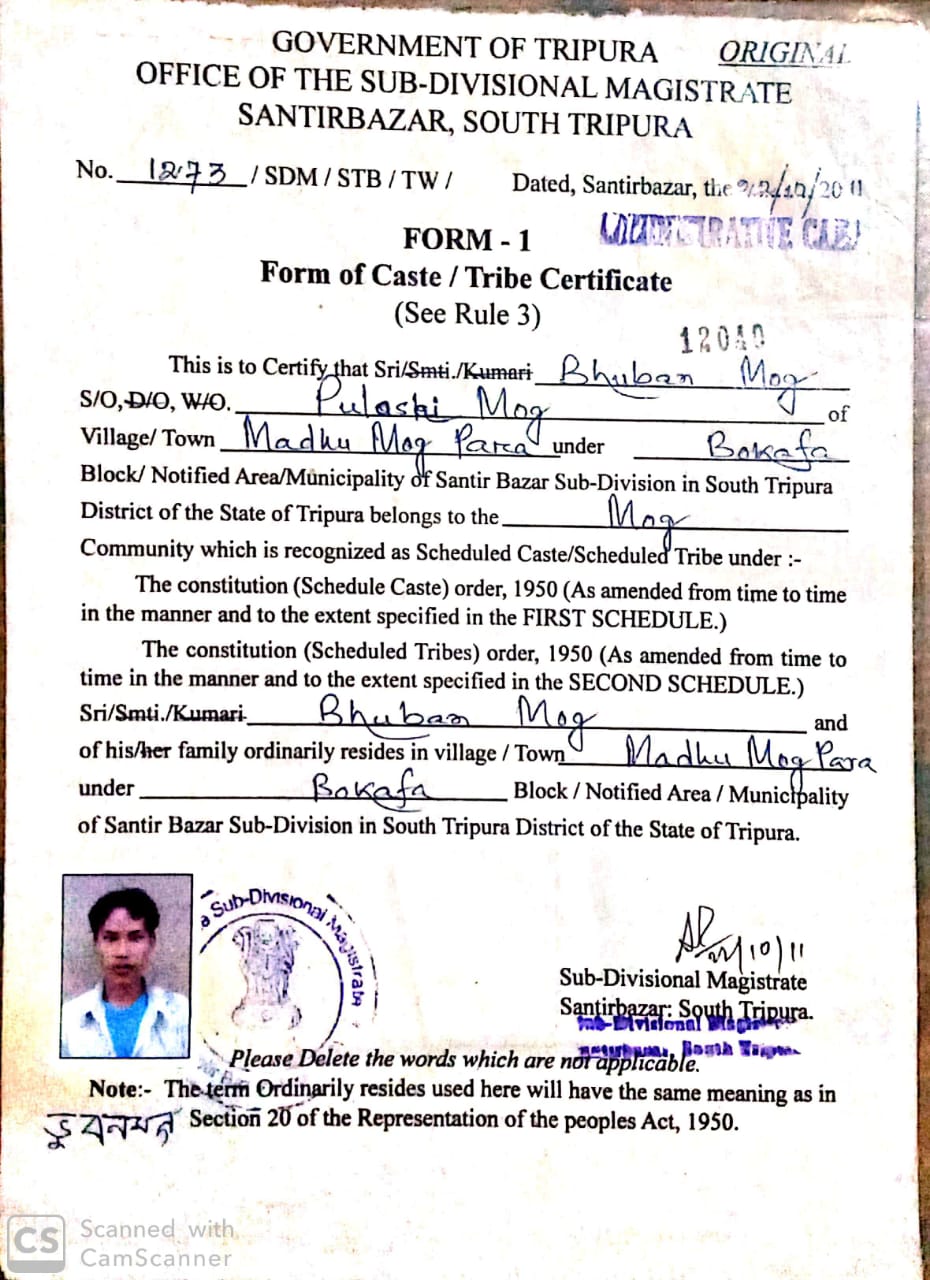 GOVERNMENT OF TRIPURA ORIGINAL
OFFICE OF THE SUB-DIVISIONAL MAGISTRATE
SANTIRBAZAR, SOUTH TRIPURA
No. 1273 / SDM / STB / TW / Dated, Santirbazar, the 22/10/2011
FORM - 1
Form of Caste / Tribe Certificate
(See Rule 3)
This is to Certify that Sri/Smti./Kumari Bhuban Mog
S/O, D/O, W/O. Pulashi Mog of
Village/ Town Madhu Mog Para under Bokafa
Block/ Notified Area/Municipality of Santir Bazar Sub-Division in South Tripura
District of the State of Tripura belongs to the Mog
Community which is recognized as Scheduled Caste/Scheduled Tribe under :-
The constitution (Schedule Caste) order, 1950 (As amended from time to time
in the manner and to the extent specified in the FIRST SCHEDULE.)
The constitution (Scheduled Tribes) order, 1950 (As amended from time to
time in the manner and to the extent specified in the SECOND SCHEDULE.)
Sri/Smti./Kumari Bhuban Mog and
of his/her family ordinarily resides in village / Town Madhu Mog Para
under Bokafa Block / Notified Area / Municipality
of Santir Bazar Sub-Division in South Tripura District of the State of Tripura.
Sub-Divisional Magistrate
22/10/11
Sub-Divisional Magistrate
Santirbazar: South Tripura.
Please Delete the words which are not applicable.
Note:- The term Ordinarily resides used here will have the same meaning as in
Section 20 of the Representation of the peoples Act, 1950.
CS Scanned with
CamScanner